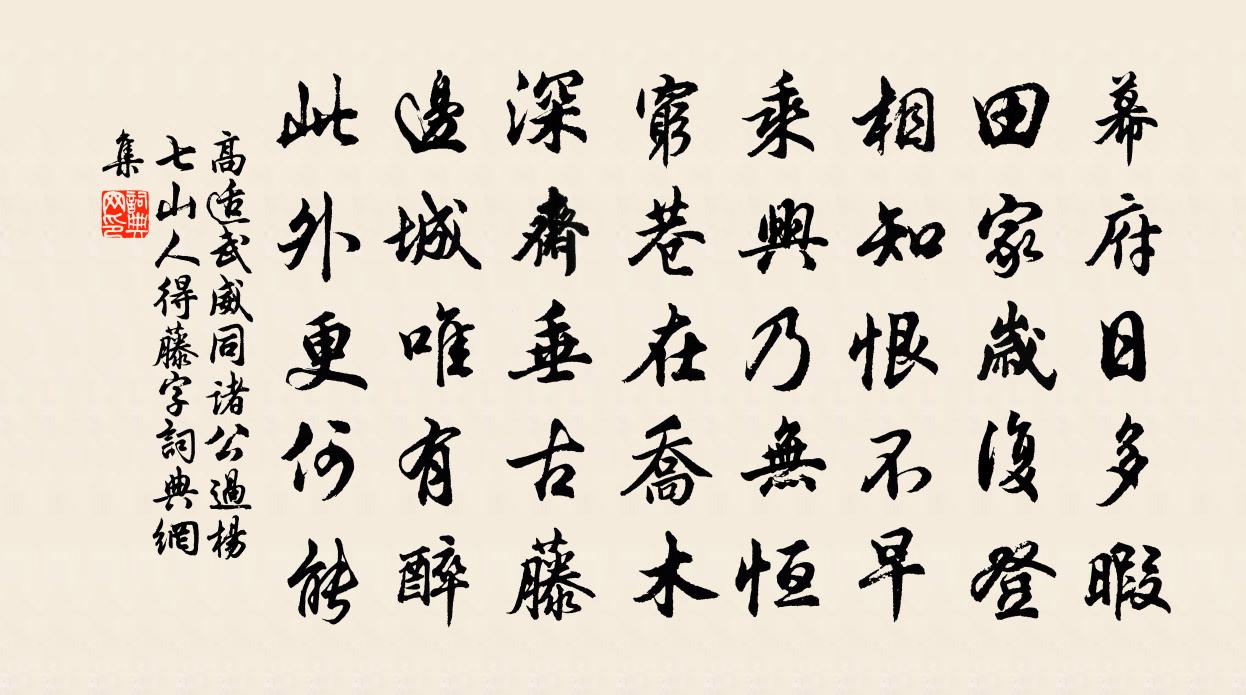 幕府日多暇
田家歲復登
相知恨不早
乘興乃無恒
窮巷在喬木
深齋垂古藤
邊城唯有醉
此外更何能
高適武威同諸公過楊
七山人得藤字詞典網
集
詞典網印